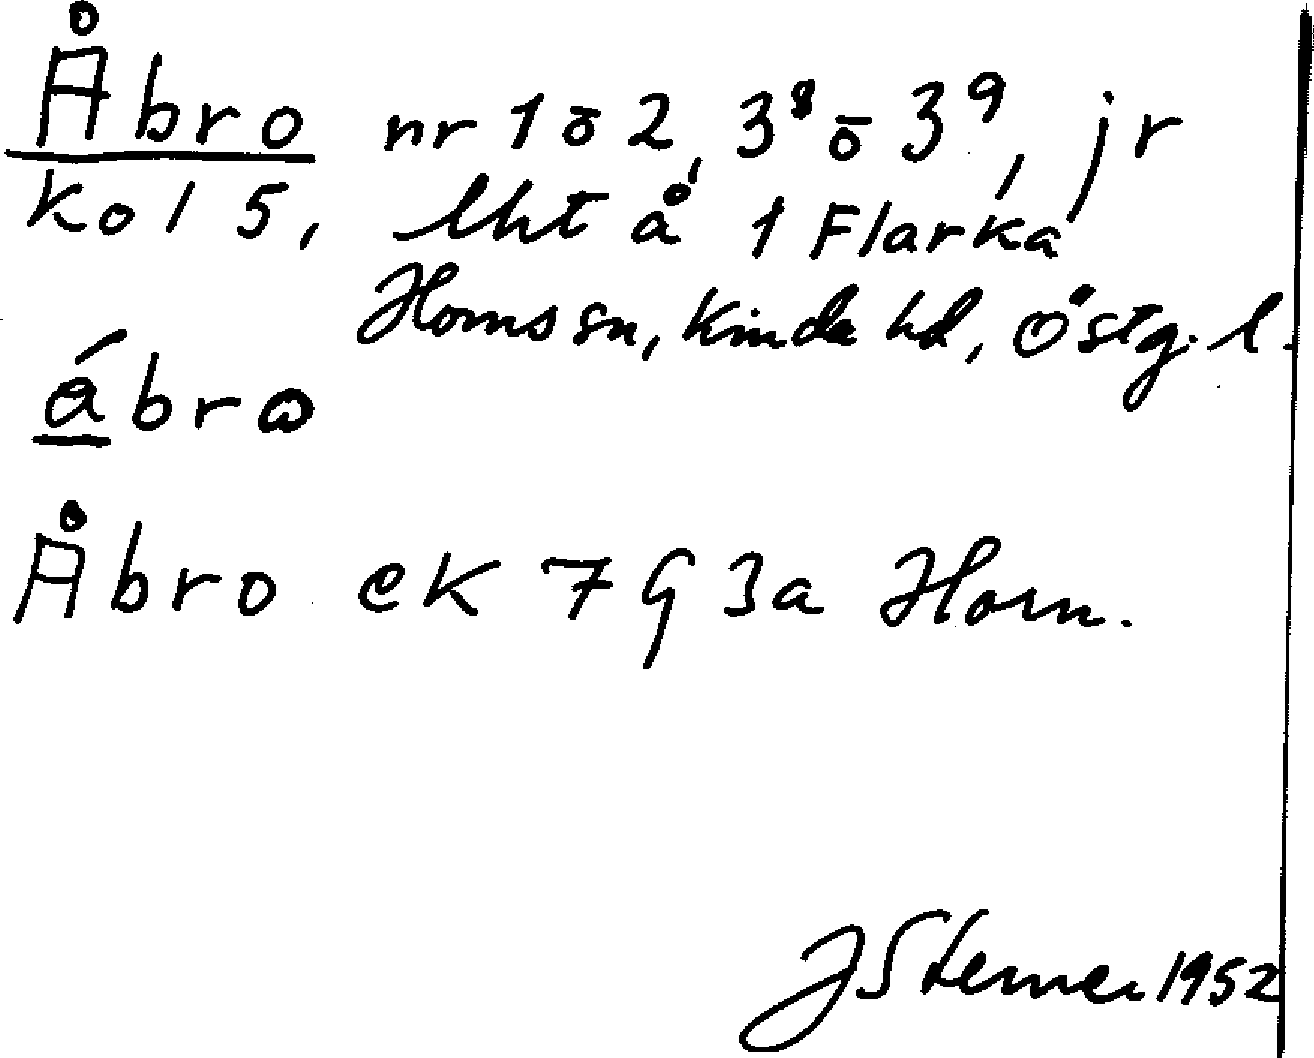 Åbro nr 1 ō 2, 3⁸ ō 3⁹, jr
kol 5, lht å 1 Flarka
Horns sn, Kinda hd, Östg. l.
ábro
Åbro ek 7 G 3a Horn.
J Sterner 1952